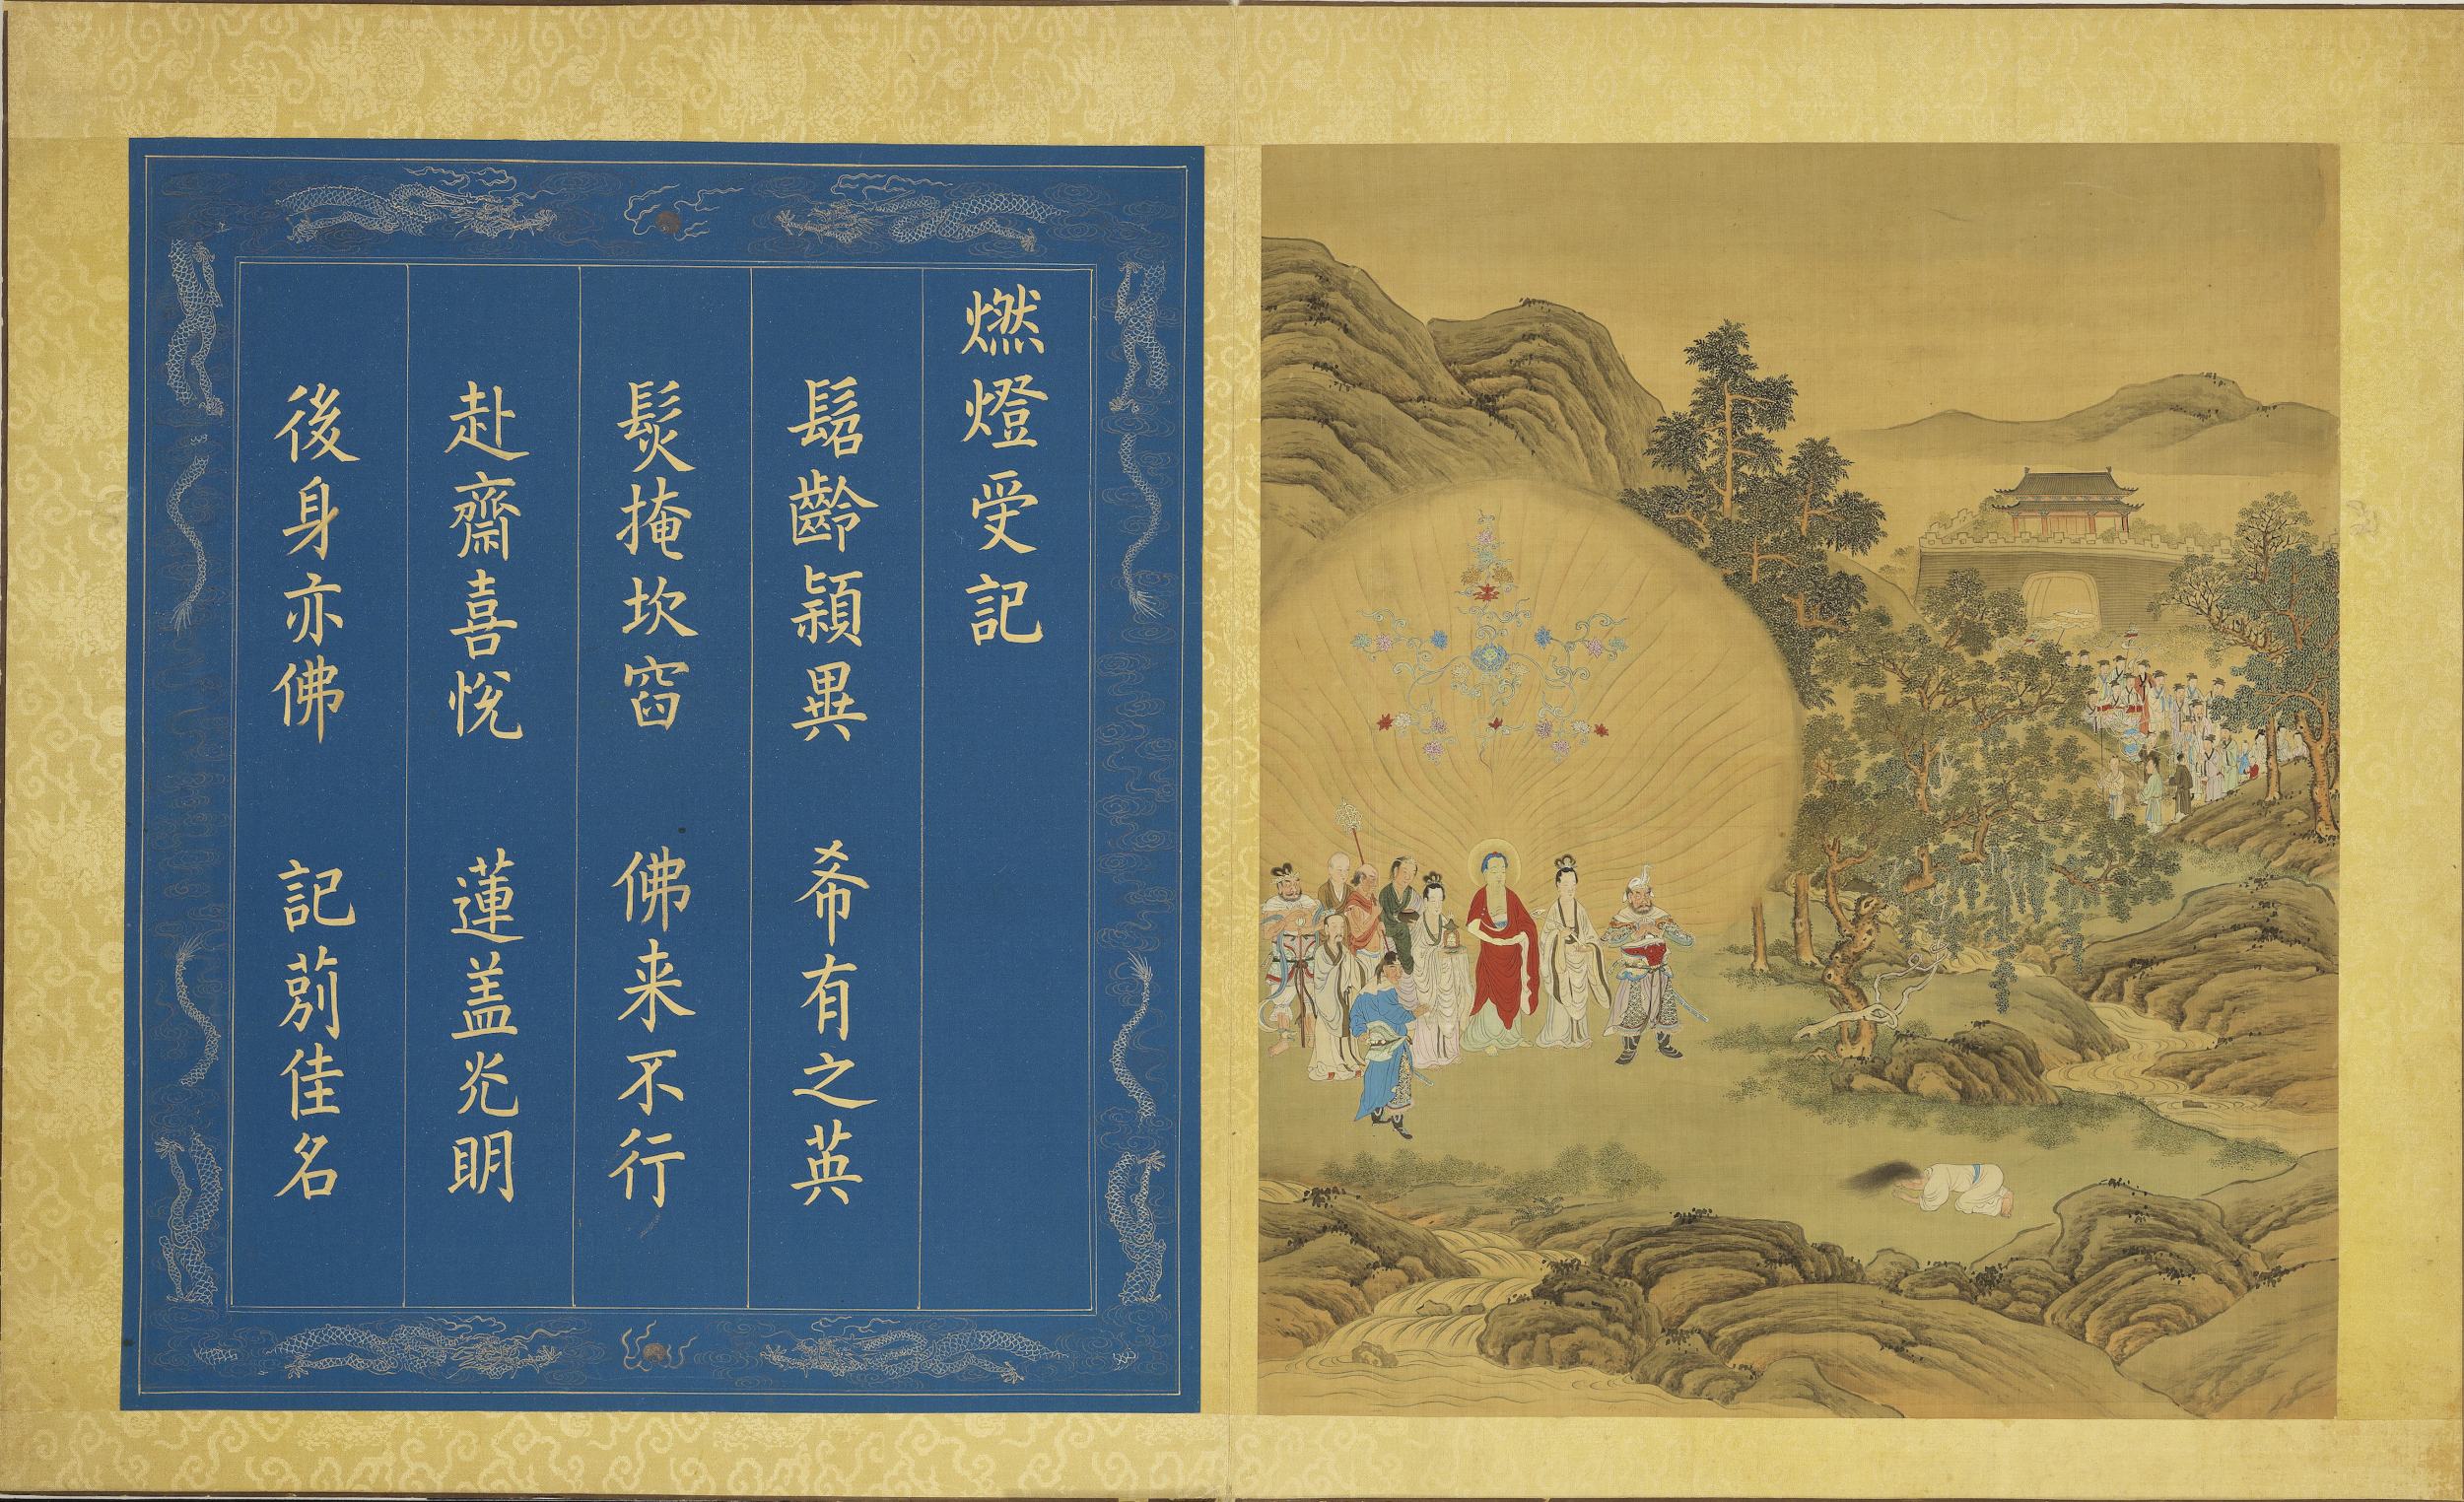 燃燈受記
髫齡穎異 希有之英
髮掩坎窞 佛来不行
赴齋喜悅 蓮盖光明
後身亦佛 記莂佳名